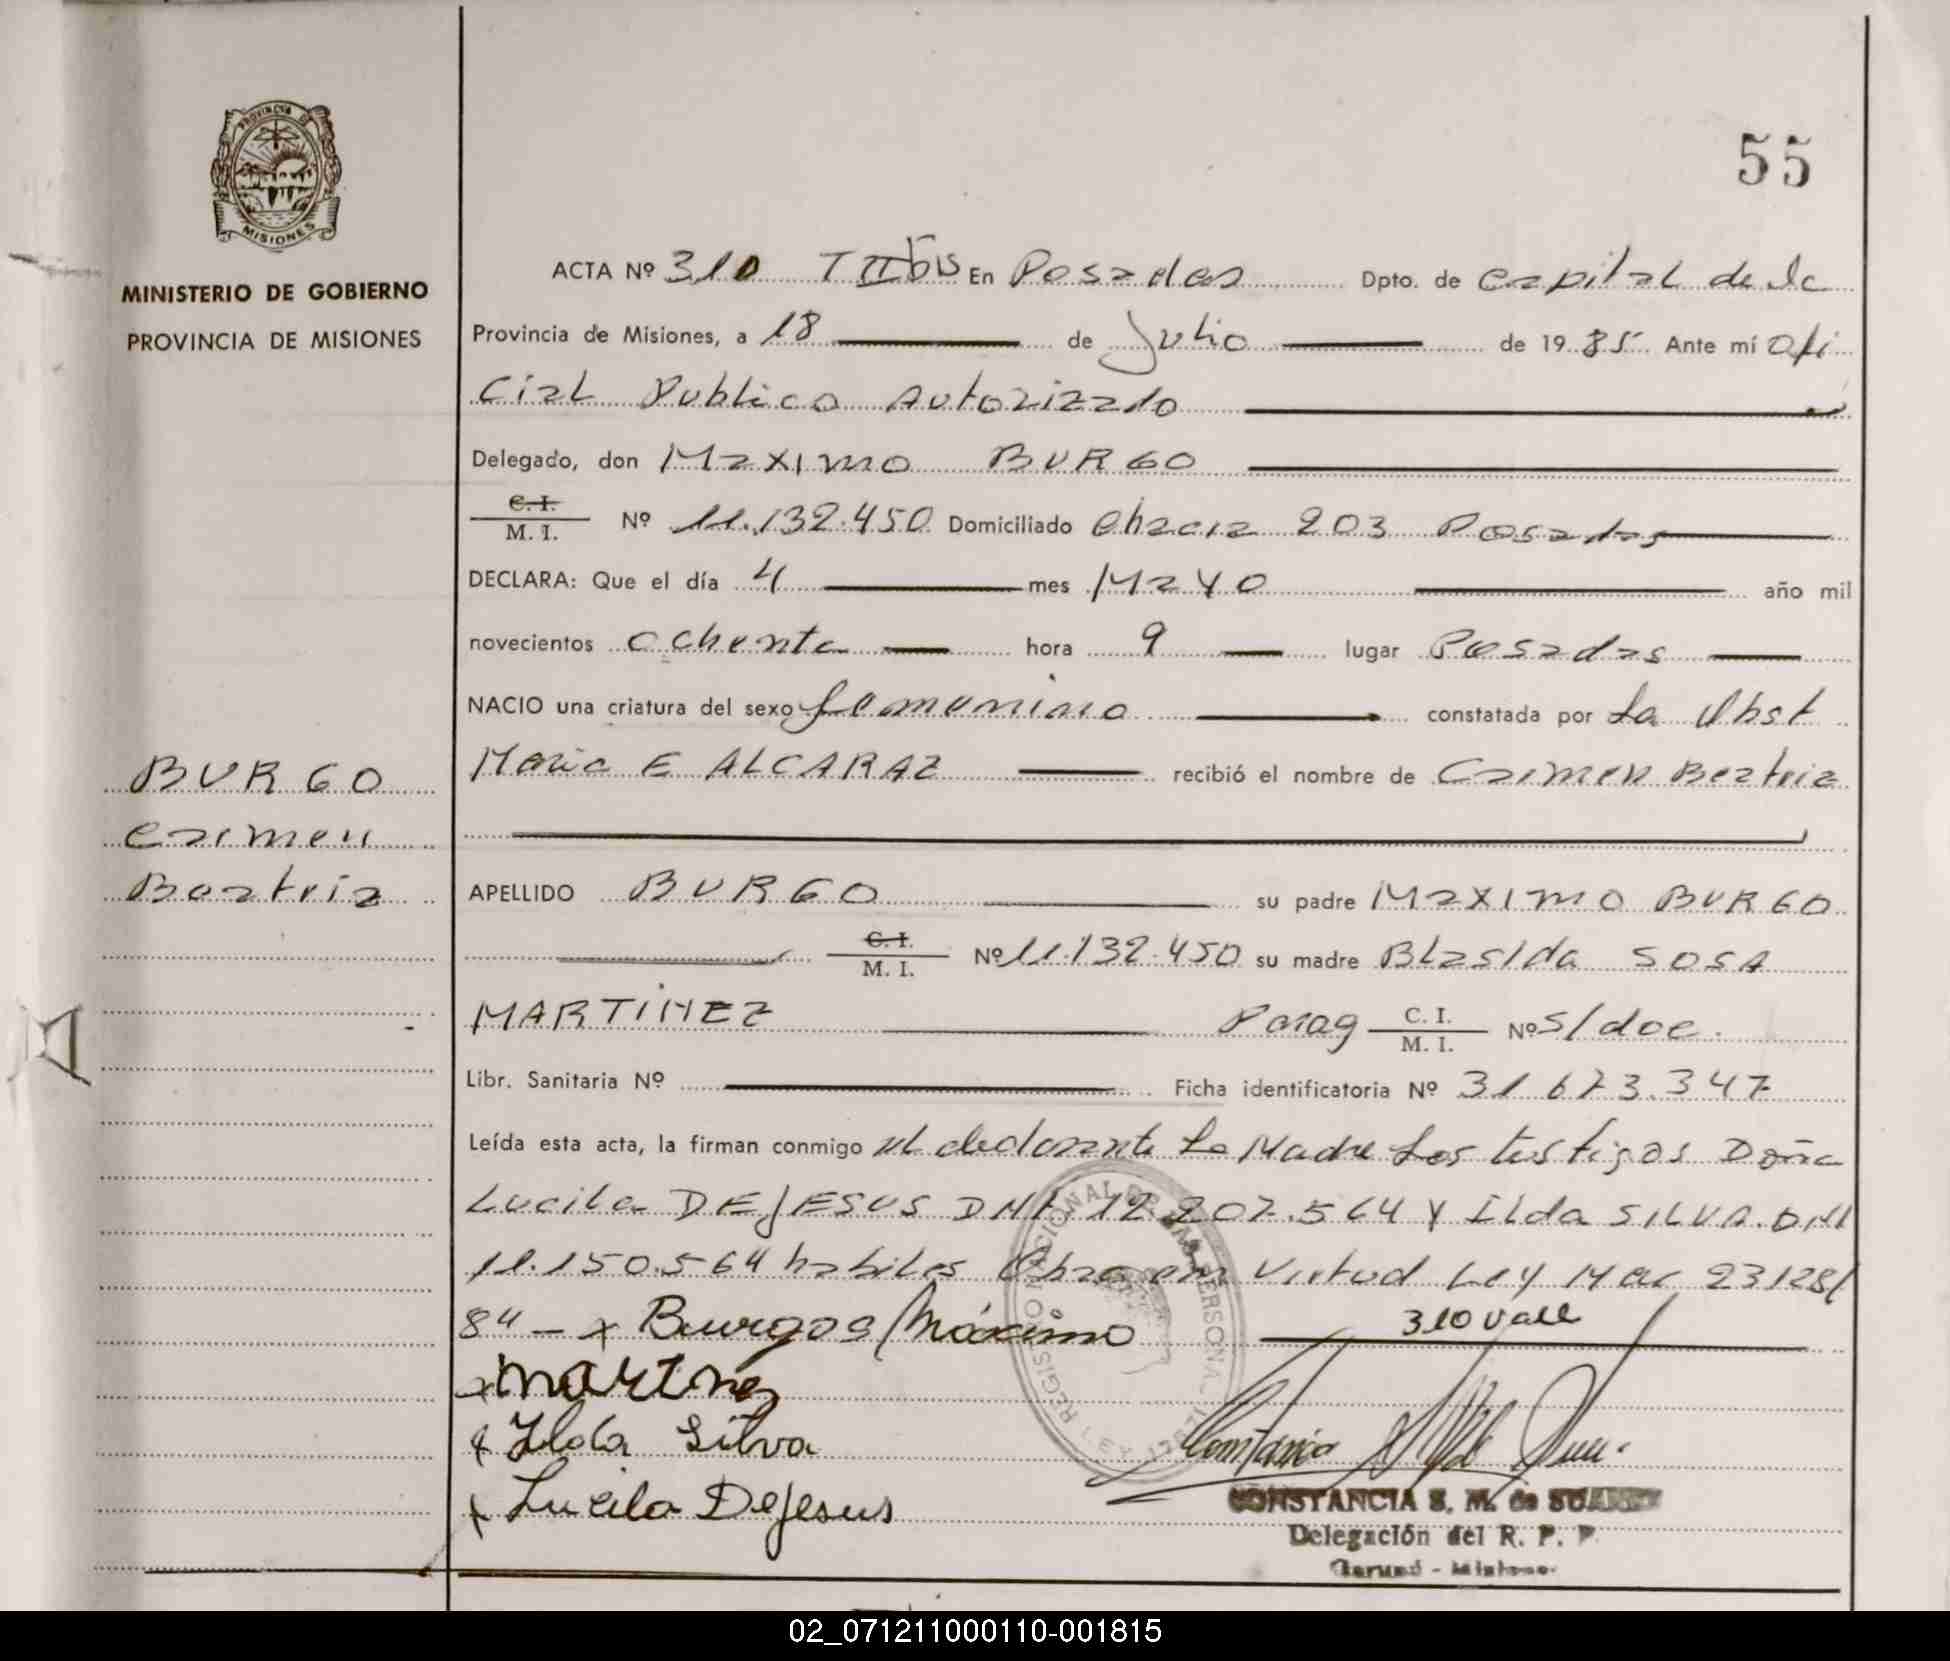 55
PROVINCIA DE
MISIONES
MINISTERIO DE GOBIERNO
PROVINCIA DE MISIONES
ACTA Nº 310 T II bis En Posadas Dpto. de Capital de la
Provincia de Misiones, a 18 de Julio de 1985 Ante mí Ofi
cial Publico Autorizado
Delegado, don Maximo BURGO
C. I. / M. I. Nº 11.132.450 Domiciliado Chacra 203 Posadas
DECLARA: Que el día 4 mes Mayo año mil
novecientos ochenta hora 9 lugar Posadas
NACIO una criatura del sexo femenino constatada por La Obst
Maria E ALCARAZ recibió el nombre de Carmen Beatriz
BURGO
Carmen
Beatriz
APELLIDO BURGO su padre Maximo BURGO
C. I. / M. I. Nº 11.132.450 su madre Blasida SOSA
MARTINEZ Parag C. I. / M. I. Nº S/doc.
Libr. Sanitaria Nº Ficha identificatoria Nº 31.673.347
Leída esta acta, la firman conmigo el declarante La Madre Los testigos Doña
Lucila DEJESUS DNI 12.207.564 y Ilda SILVA. DNI
11.150.564 habiles Obra en Virtud Ley Nac 23128/
84 - x Burgos Máximo 310 Vale
x Martinez
x Ilda Silva
x Lucila DeJesus
REGISTRO NACIONAL DE LAS PERSONAS LEY
CONSTANCIA S. M. de SUAREZ
Delegación del R. P. P.
Garupá - Misiones
02_071211000110-001815